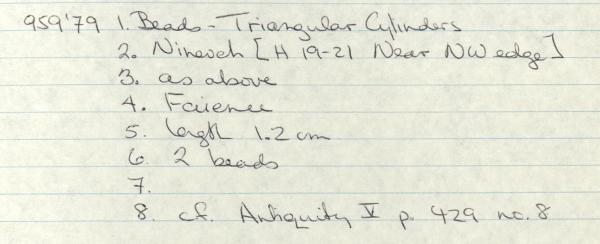 959'79 1. Beads - Triangular Cylinders
2. Nineveh [H 19-21 Near NW edge]
3. as above
4. Faience
5. length 1.2 cm
6. 2 beads
7.
8. cf. Antiquity V p. 429 no. 8